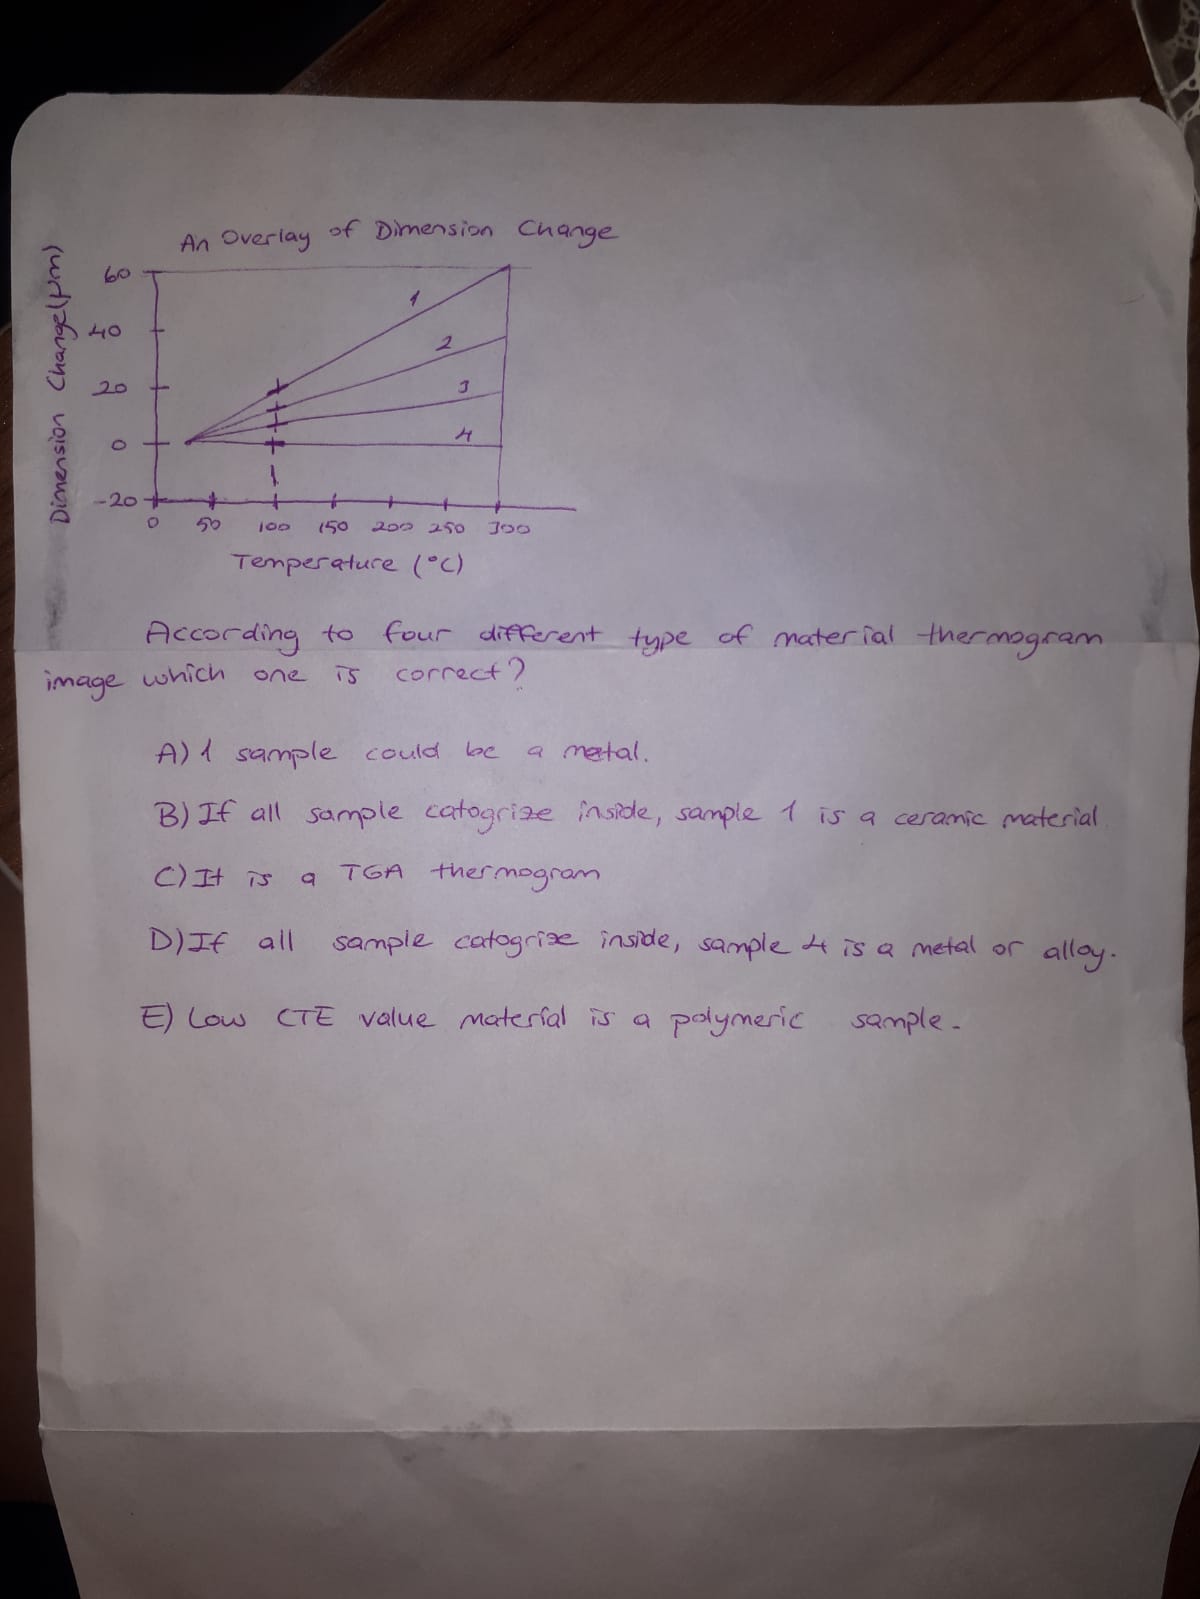 An Overlay of Dimension Change
Dimension Change(μm)
60
40
20
0
-20
1
2
3
4
0 50 100 150 200 250 300
Temperature (°C)
According to four different type of material thermogram
image which one is correct?
A) 1 sample could be a metal.
B) If all sample catogrize inside, sample 1 is a ceramic material
C) It is a TGA thermogram
D) If all sample catogrize inside, sample 4 is a metal or alloy.
E) Low CTE value material is a polymeric sample.